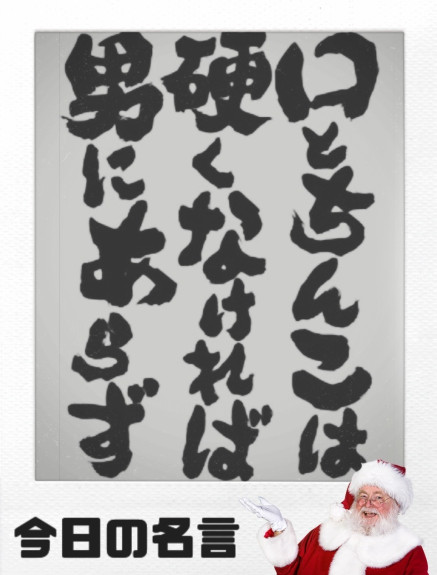 口とちんこは
硬くなければ
男にあらず
今日の名言